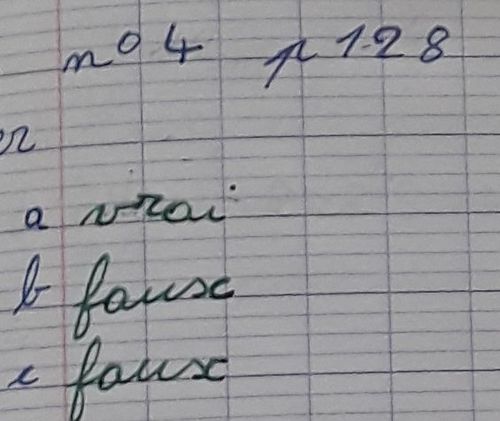 n° 4 p 128
a vrai
b faux
c faux